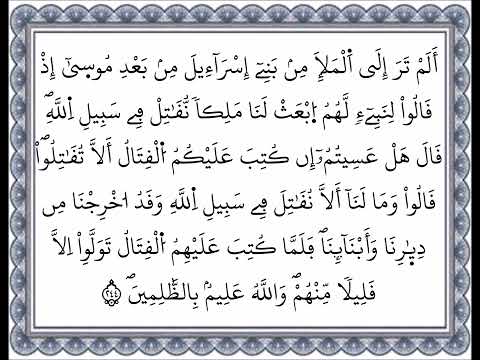 أَلَمْ تَرَ إِلَى اَ۬لْمَلَإِ مِنۢ بَنِےٓ إِسْرَآءِيلَ مِنۢ بَعْدِ مُوس۪ىٰٓ إِذْ
قَالُواْ لِنَبِےٓءٖ لَّهُمُ اُ۪بْعَثْ لَنَا مَلِكاٗ نُّقَٰتِلْ فِے سَبِيلِ اِ۬للَّهِۖ
قَالَ هَلْ عَسِيتُمُۥٓ إِن كُتِبَ عَلَيْكُمُ اُ۬لْقِتَالُ أَلَّا تُقَٰتِلُواْۖ
قَالُواْ وَمَا لَنَآ أَلَّا نُقَٰتِلَ فِے سَبِيلِ اِ۬للَّهِ وَقَدُ ا۟خْرِجْنَا مِن
دِيٰ۪رِنَا وَأَبْنَآئِنَاۖ فَلَمَّا كُتِبَ عَلَيْهِمُ اُ۬لْقِتَالُ تَوَلَّوِاْ اِلَّا
قَلِيلاٗ مِّنْهُمْۖ وَاللَّهُ عَلِيمُۢ بِالظَّٰلِمِينَۖ ٢٤٤